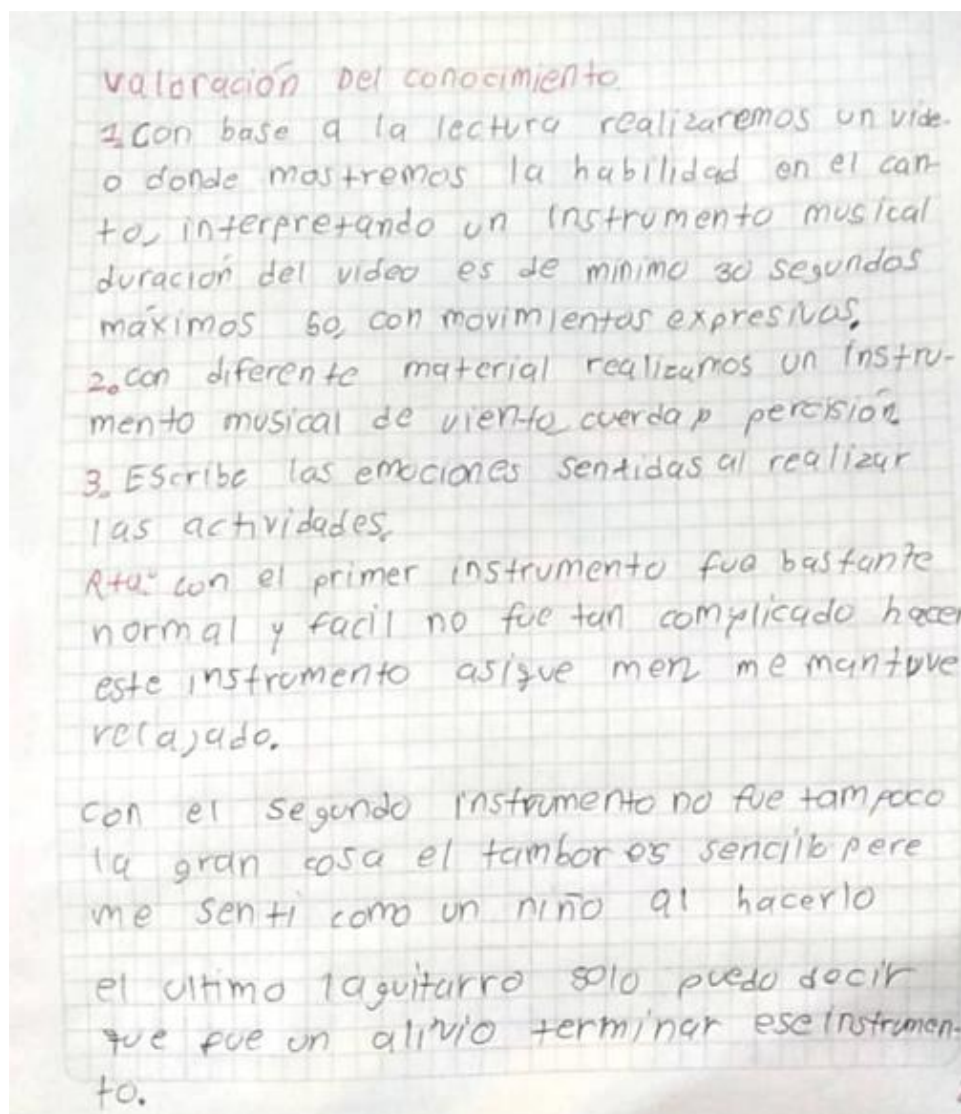 valoración Del conocimiento
1. con base a la lectura realizaremos un vide-
o donde mostremos la habilidad en el can-
to, interpretando un instrumento musical
duración del video es de minimo 30 segundos
máximos 60, con movimientos expresivos.
2. con diferente material realizamos un instru-
mento musical de viento cuerda p percisión
3. Escribe las emociones sentidas al realizar
las actividades.
Rta: con el primer instrumento fue bastante
normal y facil no fue tan complicado hacer
este instrumento asique men me mantuve
relajado.
con el segundo instrumento no fue tampoco
la gran cosa el tambor es sencillo pere
me senti como un niño al hacerlo
el ultimo la guitarro solo puedo decir
que fue un alivio terminar ese instrumen-
to.